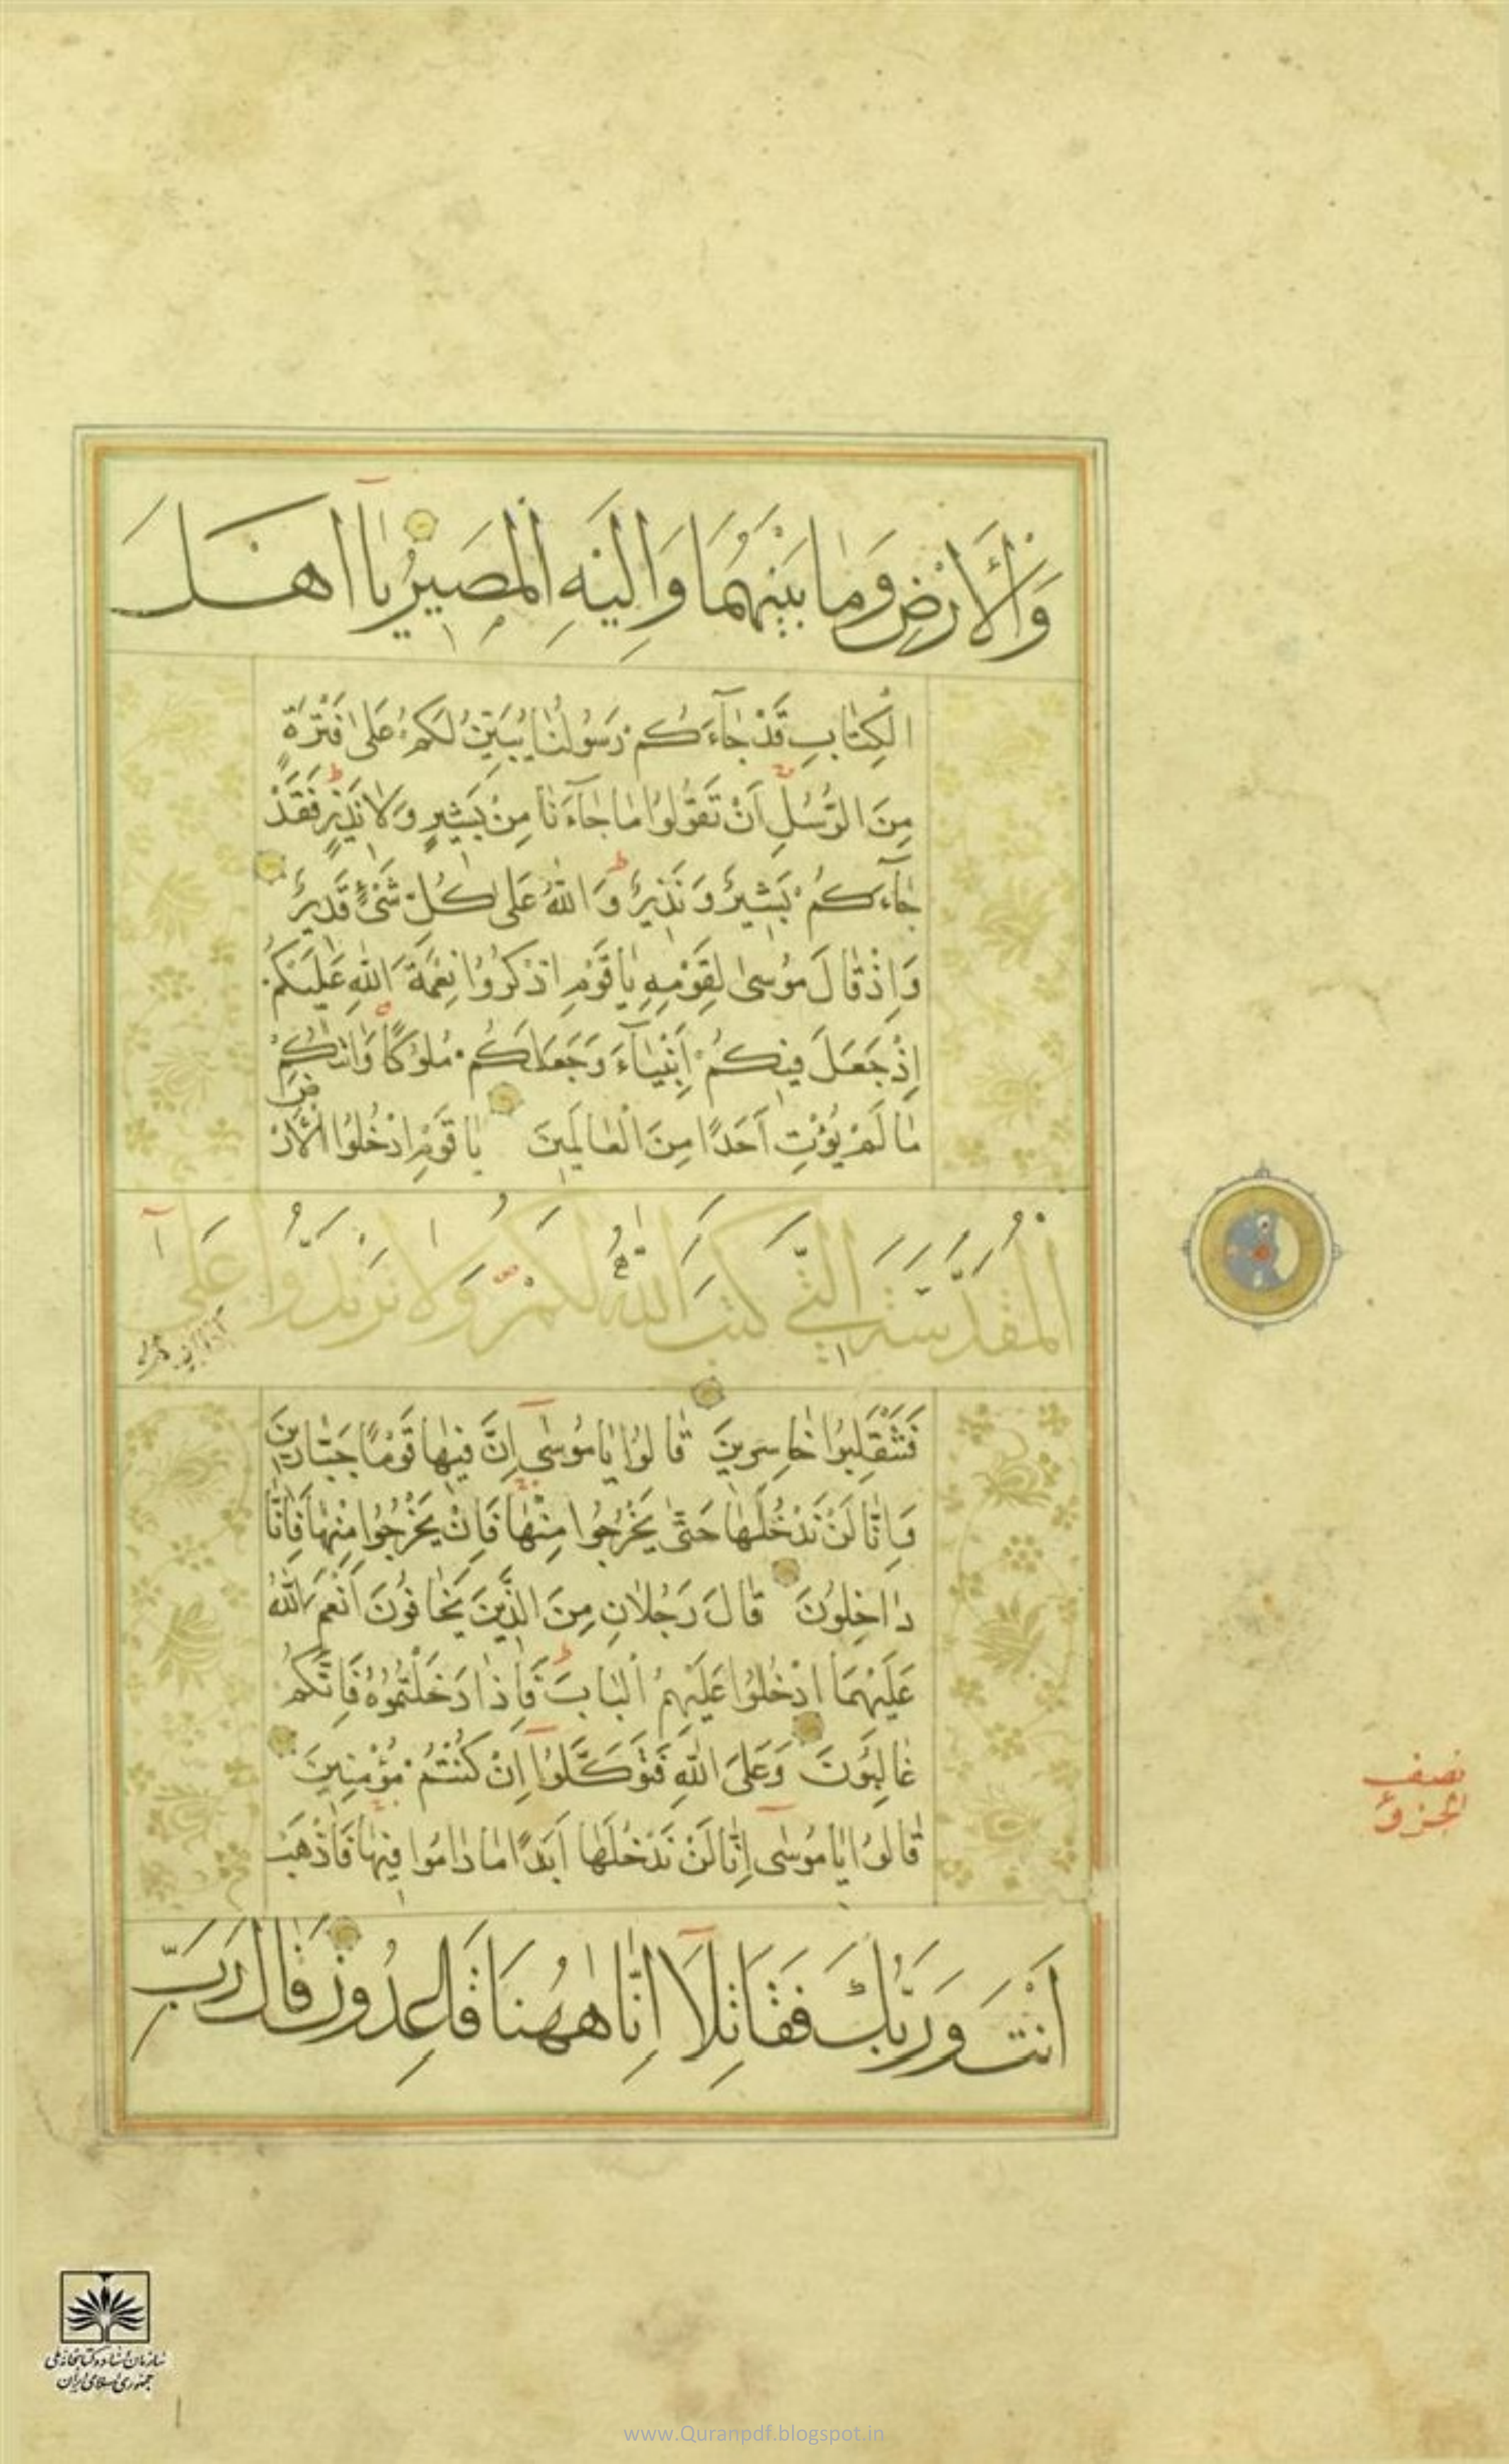 وَالْأَرْضِ وَمَا بَيْنَهُمَا وَإِلَيْهِ الْمَصِيرُ يَا أَهْلَ
الْكِتَابِ قَدْ جَاءَكُمْ رَسُولُنَا يُبَيِّنُ لَكُمْ عَلَىٰ فَتْرَةٍ
مِنَ الرُّسُلِ أَنْ تَقُولُوا مَا جَاءَنَا مِنْ بَشِيرٍ وَلَا نَذِيرٍ فَقَدْ
جَاءَكُمْ بَشِيرٌ وَنَذِيرٌ وَاللَّهُ عَلَىٰ كُلِّ شَيْءٍ قَدِيرٌ
وَإِذْ قَالَ مُوسَىٰ لِقَوْمِهِ يَا قَوْمِ اذْكُرُوا نِعْمَةَ اللَّهِ عَلَيْكُمْ
إِذْ جَعَلَ فِيكُمْ أَنْبِيَاءَ وَجَعَلَكُمْ مُلُوكًا وَآتَاكُمْ
مَا لَمْ يُؤْتِ أَحَدًا مِنَ الْعَالَمِينَ يَا قَوْمِ ادْخُلُوا الْأَرْضَ
الْمُقَدَّسَةَ الَّتِي كَتَبَ اللَّهُ لَكُمْ وَلَا تَرْتَدُّوا عَلَىٰ
أَدْبَارِكُمْ
فَتَنْقَلِبُوا خَاسِرِينَ قَالُوا يَا مُوسَىٰ إِنَّ فِيهَا قَوْمًا جَبَّارِينَ
وَإِنَّا لَنْ نَدْخُلَهَا حَتَّىٰ يَخْرُجُوا مِنْهَا فَإِنْ يَخْرُجُوا مِنْهَا فَإِنَّا
دَاخِلُونَ قَالَ رَجُلَانِ مِنَ الَّذِينَ يَخَافُونَ أَنْعَمَ اللَّهُ
عَلَيْهِمَا ادْخُلُوا عَلَيْهِمُ الْبَابَ فَإِذَا دَخَلْتُمُوهُ فَإِنَّكُمْ
غَالِبُونَ وَعَلَى اللَّهِ فَتَوَكَّلُوا إِنْ كُنْتُمْ مُؤْمِنِينَ
قَالُوا يَا مُوسَىٰ إِنَّا لَنْ نَدْخُلَهَا أَبَدًا مَا دَامُوا فِيهَا فَاذْهَبْ
أَنْتَ وَرَبُّكَ فَقَاتِلَا إِنَّا هَاهُنَا قَاعِدُونَ قَالَ رَبِّ
نصف
الجزؤ
سازمان اسناد و کتابخانه ملی
جمهوری اسلامی ایران
www.Quranpdf.blogspot.in